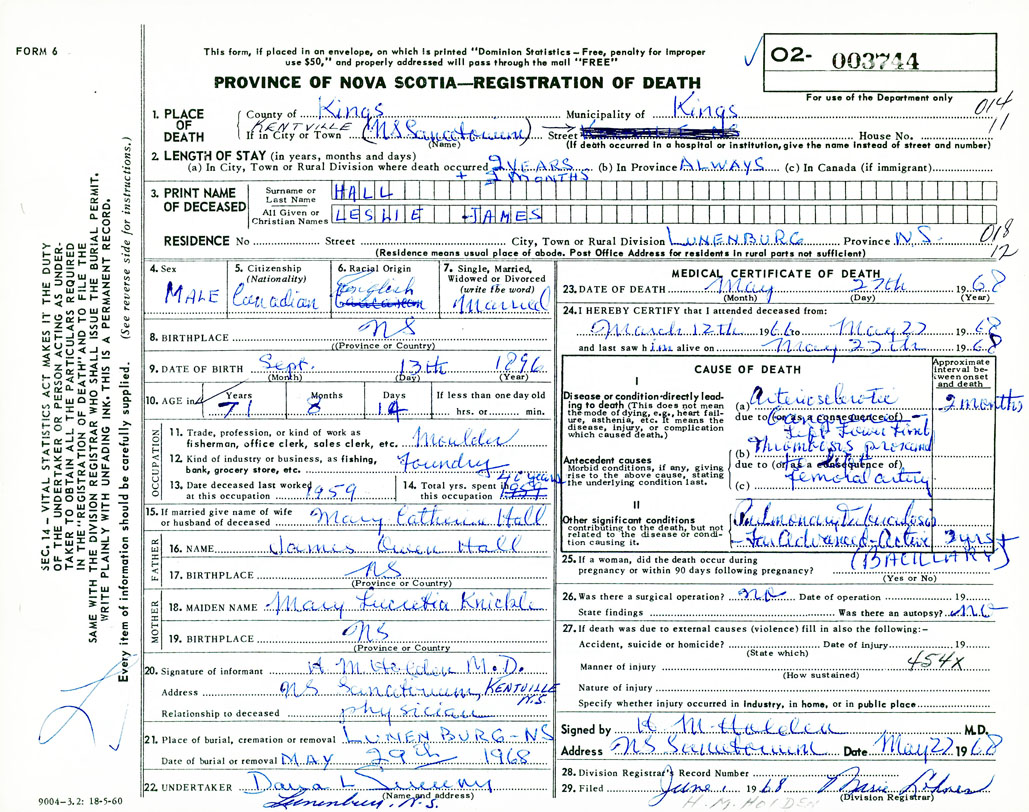 FORM 6
This form, if placed in an envelope, on which is printed "Dominion Statistics – Free, penalty for improper
use $50," and properly addressed will pass through the mail "FREE"
PROVINCE OF NOVA SCOTIA—REGISTRATION OF DEATH
O2- 003744
For use of the Department only
014
11
1. PLACE OF DEATH
County of Kings Municipality of Kings
KENTVILLE
If in City or Town (NS Sanatorium) Street House No.
(Name) (If death occurred in a hospital or institution, give the name instead of street and number)
2. LENGTH OF STAY (in years, months and days)
(a) In City, Town or Rural Division where death occurred 2 YEARS (b) In Province ALWAYS (c) In Canada (if immigrant)
+ 2 MONTHS
3. PRINT NAME OF DECEASED
Surname or Last Name HALL
All Given or Christian Names LESLIE JAMES
018
12
RESIDENCE No. Street City, Town or Rural Division LUNENBURG Province N.S.
(Residence means usual place of abode. Post Office Address for residents in rural parts not sufficient)
4. Sex MALE
5. Citizenship (Nationality) Canadian
6. Racial Origin English
7. Single, Married, Widowed or Divorced (write the word) Married
8. BIRTHPLACE NS
(Province or Country)
9. DATE OF BIRTH Sept. 13th 1896
(Month) (Day) (Year)
10. AGE in Years Months Days If less than one day old
71 8 14 hrs. or min.
OCCUPATION
11. Trade, profession, or kind of work as
fisherman, office clerk, sales clerk, etc. Moulder
12. Kind of industry or business, as fishing,
bank, grocery store, etc. Foundry
13. Date deceased last worked
at this occupation 1959
14. Total yrs. spent in
this occupation years
15. If married give name of wife
or husband of deceased Mary Catherine Hall
FATHER
16. NAME James Owen Hall
17. BIRTHPLACE NS
(Province or Country)
MOTHER
18. MAIDEN NAME Mary Lucretia Knickle
19. BIRTHPLACE NS
(Province or Country)
20. Signature of informant H M Holden M.D.
Address NS Sanatorium, KENTVILLE N.S.
Relationship to deceased physician
21. Place of burial, cremation or removal LUNENBURG - NS
Date of burial or removal MAY 29th 1968
22. UNDERTAKER Dana L Sweeny
(Name and address)
Lunenburg, N.S.
MEDICAL CERTIFICATE OF DEATH
23. DATE OF DEATH May 27th 1968
(Month) (Day) (Year)
24. I HEREBY CERTIFY that I attended deceased from:
March 12th 1966 to May 27 1968
and last saw him alive on May 27th 1968
CAUSE OF DEATH
Approximate interval between onset and death
I
Disease or condition directly leading to death (This does not mean
the mode of dying, e.g., heart failure, asthenia, etc. It means the
disease, injury, or complication
which caused death.)
(a) Arteriosclerotic 2 months
due to (or as a consequence of)
Gangrene
Left Lower Limb
(b) Thrombosis
due to (or as a consequence of)
(c) femoral artery
Antecedent causes
Morbid conditions, if any, giving
rise to the above cause, stating
the underlying condition last.
II
Other significant conditions
contributing to the death, but not
related to the disease or condition causing it.
Pulmonary Tuberculosis
- Far Advanced - Active 3 yrs +
(BACILLARY)
25. If a woman, did the death occur during
pregnancy or within 90 days following pregnancy?
(Yes or No)
26. Was there a surgical operation? no Date of operation 19
State findings Was there an autopsy? no
27. If death was due to external causes (violence) fill in also the following:–
Accident, suicide or homicide? Date of injury 19
(State which)
454X
Manner of injury
(How sustained)
Nature of injury
Specify whether injury occurred in industry, in home, or in public place
Signed by H M Holden M.D.
Address NS Sanatorium Date May 27 1968
28. Division Registrar's Record Number
29. Filed June 1 1968 Marie
(Division Registrar)
H.M. HOLDEN
9004-3.2: 18-5-60
SEC. 14 – VITAL STATISTICS ACT MAKES IT THE DUTY
OF THE UNDERTAKER OR PERSON ACTING AS UNDERTAKER TO OBTAIN ALL THE PARTICULARS REQUIRED
IN THE "REGISTRATION OF DEATH" AND TO FILE THE
SAME WITH THE DIVISION REGISTRAR WHO SHALL ISSUE THE BURIAL PERMIT.
WRITE PLAINLY WITH UNFADING INK. THIS IS A PERMANENT RECORD.
Every item of information should be carefully supplied. (See reverse side for instructions.)